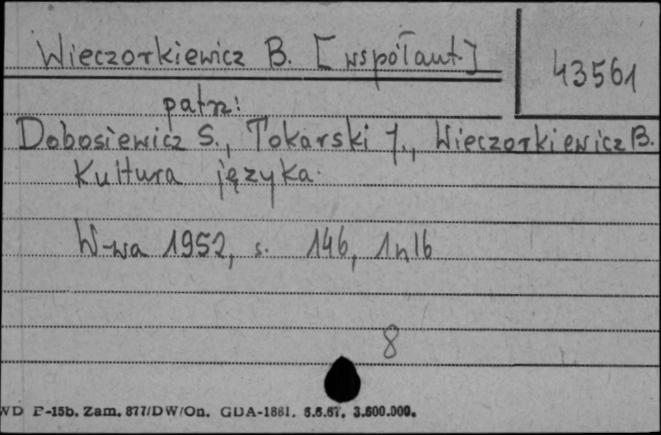 Wieczorkiewicz B. [współaut.]
43561
patrz:
Dobosiewicz S., Tokarski J., Wieczorkiewicz B.
Kultura języka.
W-wa 1952, s. 146, 1nlb
8
WD P-15b. Zam. 877/DW/On. GDA-1881. 8.6.67. 3.600.000.